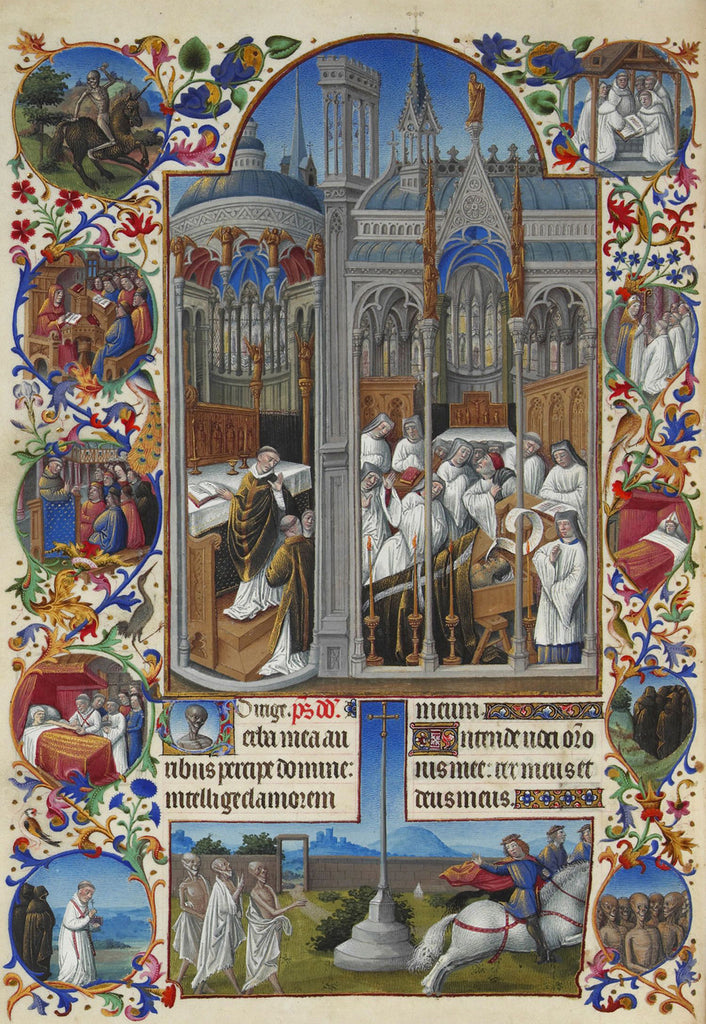 Dirige. p̄s dd̄.
Verba mea au
ribus percipe domine:
intellige clamorem
meum.
Intende voci orō
nis mee: rex meus et
deus meus.